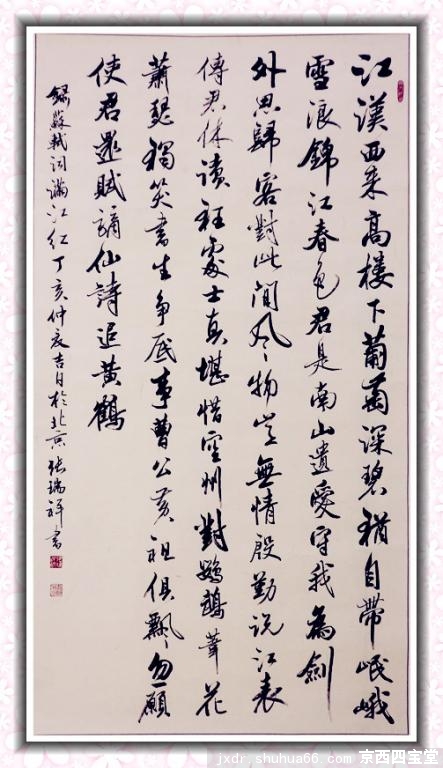 江漢西来高樓下葡萄深碧猶自帶岷峨
雪浪錦江春色君是南山遺愛守我為劍
外思歸客對此間风物豈無情殷勤说江表
傳君休讀狂處士真堪惜空州對鸚鵡葦花
蕭瑟獨笑書生争底事曹公黄祖俱飄忽願
使君還賦謫仙詩追黄鶴
錄蘇軾词滿江红丁亥仲夏吉日於北京张瑞祥書
jxdr.shuhua66.com 京西四宝堂